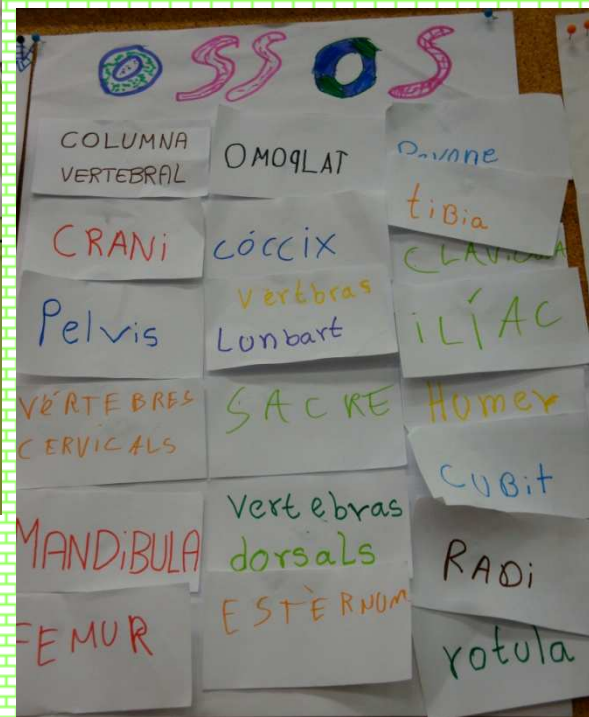 OSSOS
COLUMNA
VERTEBRAL
CRANi
Pelvis
VÉRTEBRES
CERVICALS
MANDiBULA
FEMUR
OMOqLAT
CÓCCiX
Vértbras
Lunbart
SACRE
Vertebras
dorsals
ESTÈRNUM
tiBia
iLÍAC
Humer
CUBit
RADi
rotula